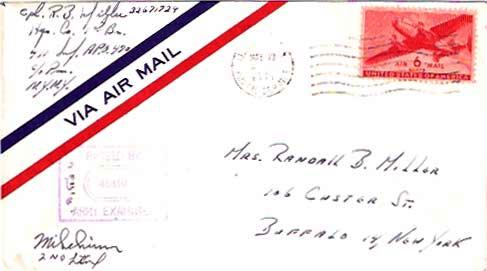 Cpl. R. B. Miller 32671724
Hqs. Co. 1st Bn.
Inf. APO 420
c/o P.m.
N.Y. N.Y.
VIA AIR MAIL
AIR 6 MAIL
CENTS
UNITED STATES OF AMERICA
PASSED BY
ARMY EXAMINER
Mrs. Randall B. Miller
106 Custer St.
Buffalo 14, New York
2nd